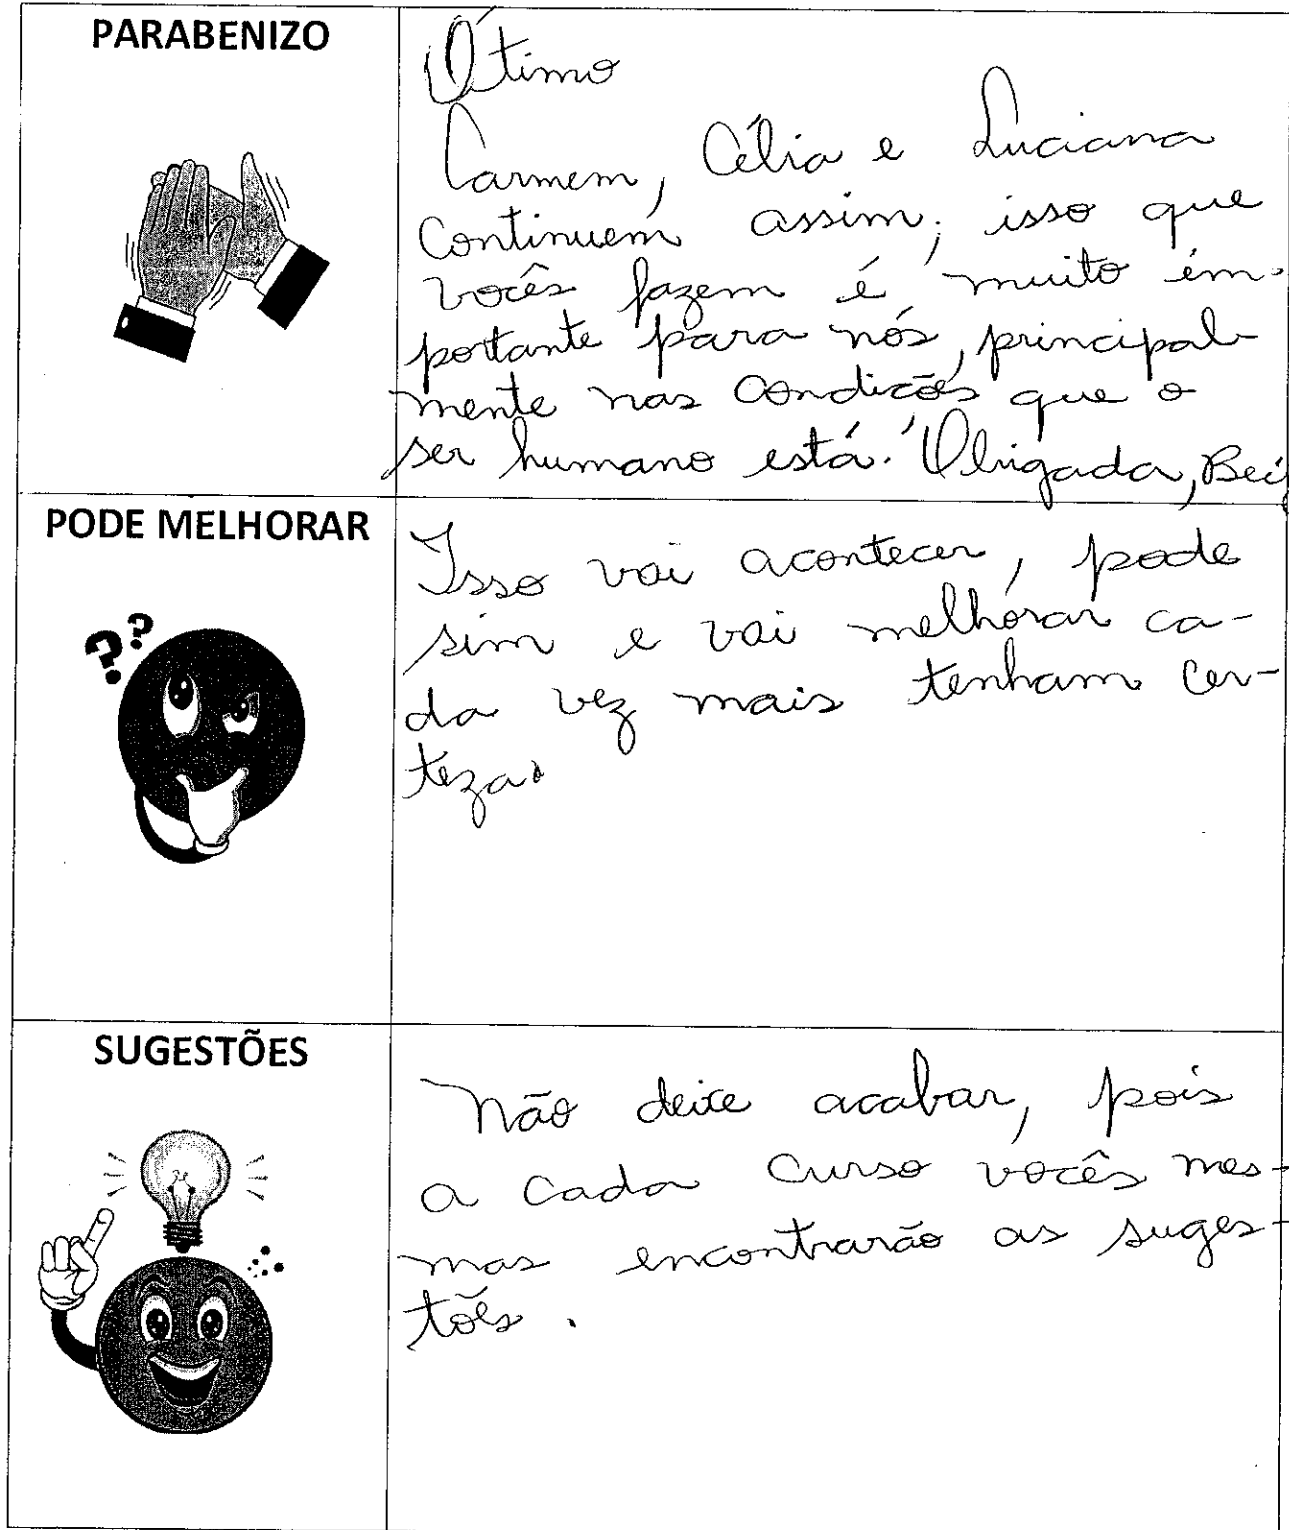 PARABENIZO
Ótimo
Carmem, Célia e Luciana
Continuem assim, isso que
vocês fazem é muito im-
portante para nós, principal-
mente nas condições que o
ser humano está. Obrigada,
PODE MELHORAR
Isso vai acontecer, pode
sim e vai melhorar ca-
da vez mais tenham cer-
teza.
SUGESTÕES
Não deixe acabar, pois
a cada curso vocês mes-
mas encontrarão as suges-
tões.